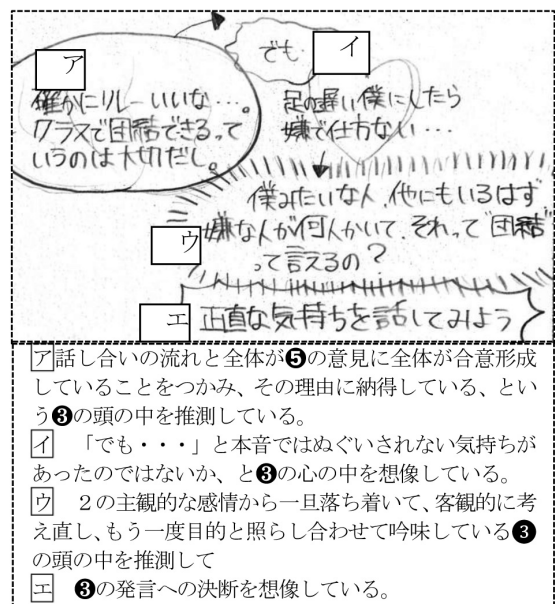 ア
でも…
イ
確かにリレーいいな…。
クラスで団結できるって
いうのは大切だし。
足の遅い僕にしたら
嫌で仕方ない…
僕みたいな人、他にもいるはず
ウ
嫌な人が何人かいて、それって“団結”
って言えるの?
エ
正直な気持ちを話してみよう
ア話し合いの流れと全体が❺の意見に全体が合意形成
していることをつかみ、その理由に納得している、とい
う❸の頭の中を推測している。
イ 「でも・・・」と本音ではぬぐいされない気持ちが
あったのではないか、と❸の心の中を想像している。
ウ 2の主観的な感情から一旦落ち着いて、客観的に考
え直し、もう一度目的と照らし合わせて吟味している❸
の頭の中を推測して
エ ❸の発言への決断を想像している。